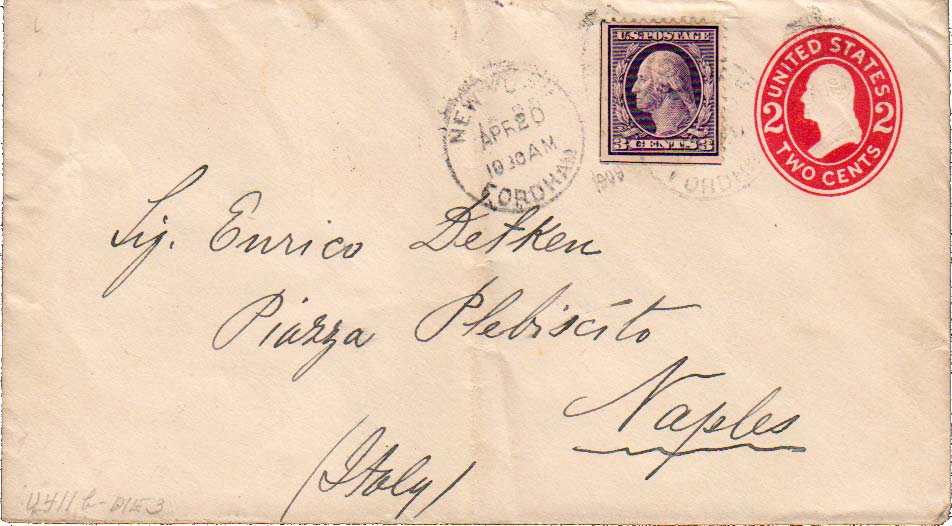 U.S. POSTAGE
3 CENTS 3
UNITED STATES
2 2
TWO CENTS
NEW YORK
APR 20
1030AM
FORDHAM
1909
FORDH
Sig. Enrico Detken
Piazza Plebiscito
Naples
(Italy)
U411b-